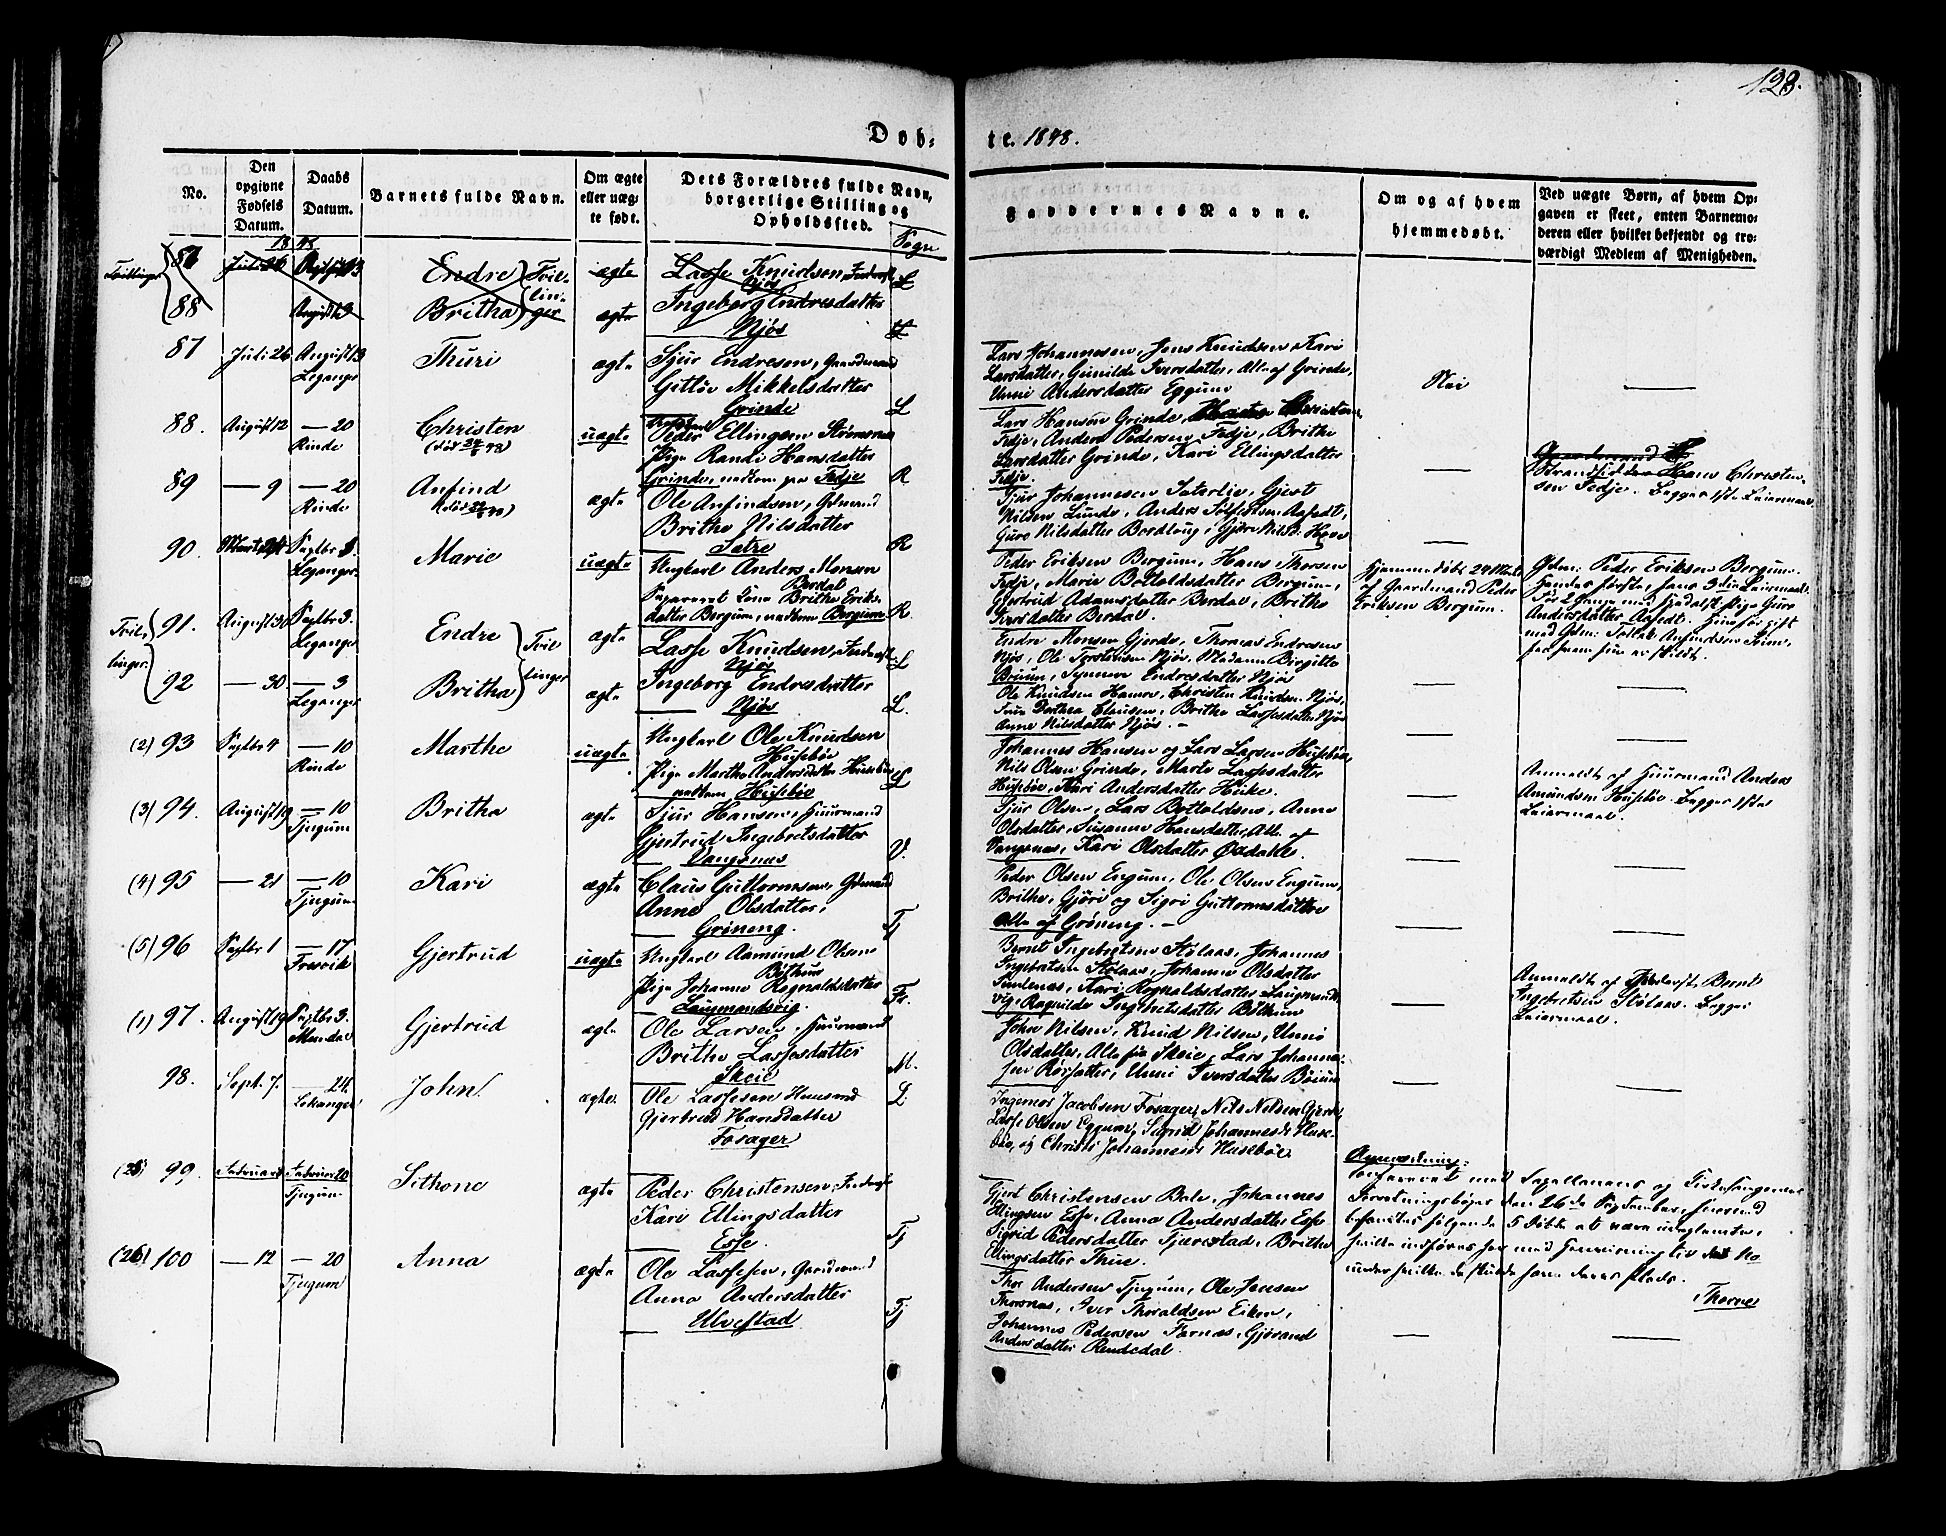 128.
Døb-
te. 1848.
No.
Den
opgivne
Fødsels
Datum.
Daabs
Datum.
Barnets fulde Navn.
Om ægte
eller uæg-
te født.
Dets Forældres fulde Navn,
borgerlige Stilling og
Opholdssted.
Sogn
Faddernes Navne.
Om og af hvem
hjemmedøbt.
Ved uægte Børn, af hvem Op-
gaven er skeet, enten Barnemo-
deren eller hvilket bekjendt og tro-
værdigt Medlem af Menigheden.
1848
Tvillinger
87
Endre
Tvil-
lin-
ger
ægte
Lasse Knudsen
Njøs
L
88
Britha
ægte
Ingeborg Endresdatter
Njøs
L
87
Juli 26
August 13
Leganger
Thuri
ægte
Sjur Endresen, Gaardmand
Gitløv Mikkelsdatter
Grinde
L
Lars Johannesen, Jens Knudsen, Kari
Larsdatter, Gunilde Iversdatter, Alle af Grinde,
Unni Andersdatter Eggum
Nei
88.
August 12
— 20
Rinde
Christen
uægte
Peder Ellingsen
Pige Randi Hansdatter
Grinde, nedkom paa Fedje
R
Lars Hansen Grinde, Christen
Fedje, Anders Pedersen Fedje, Brithe
Larsdatter Grinde, Kari Ellingsdatter
Fedje.
Strandsidder Hans Christen-
sen Fedje. Begges 1ste Leiermaal.
89
— 9
— 20
Rinde
Anfind
ægte
Ole Anfindsen, Gdmand
Brithe Nilsdatter
Sætre
R
Sjur Johannesen
Nilsen Lunde, Anders
Guro Nilsdatter
90.
Marts 24
Septbr 3.
Leganger
Marie
uægte
Ungkarl Anders Monsen
Berdal
Separeret Kone Brithe Eriks-
datter Bergum, nedkom Bergum
R.
Peder Eriksen Bergum, Hans Thorsen
Fedje, Marie Botholdsdatter Bergum,
Gjertrud Adamsdatter Berdal, Brithe
Iversdatter Berdal.
Hjemmedøbt 24 Marts
af Gaardmand Peder
Eriksen Bergum.
Gdm. Peder Eriksen Bergum.
Hendes første, hans 3die Leiermaal.
Tvil-
linger.
91.
August 30
Septbr 3.
Leganger
Endre
Tvil
linger
ægte
Lasse Knudsen
Njøs
L
Endre Monsen Gjerde, Thomas Endresen
Njøs, Ole Torstensen Njøs, Madame Birgitte
Bruun, Synneve Endresdatter Njøs
92
— 30
— 3
Leganger
Britha
ægte
Ingeborg Endresdatter
Njøs
L.
Ole Knudsen Hamre, Christen Knudsen Njøs,
Dorthea Clausen, Brithe Lassesdatter Njøs
Anne Nilsdatter Njøs. —
(2) 93
Septbr 4
— 10
Rinde
Marthe
uægte
Ungkarl Ole Knudsen
Husebø
Pige Marthe Andersdatter Husebø
nedkom Husebø
L
Johannes Hansen og Lars Larsen Husebø,
Nils Olsen Grinde, Marte Lassesdatter
Husebø, Kari Andersdatter Henke.
Anmeldt af Huusmand Anders
Amundsen Husebø. Begges 1ste
Leiermaal.
(3) 94.
August 19
— 10
Tjugum
Britha
ægte
Sjur Hansen, Huusmand
Gjertrud Ingebretsdatter
Vangsnæs
V.
Sjur Olsen, Lars Botholdsen, Anne
Olsdatter, Susanne Hansdatter, Alle af
Vangsnæs, Kari Olsdatter
(4) 95
— 21
— 10
Tjugum
Kari
ægte
Claus Guttormsen, Gdmand
Anne Olsdatter,
Grøneng.
Tj
Peder Olsen Engum, Ole Olsen Engum,
Brithe, Gjøri og Sigri Guttormsdatter
Alle af Grøneng. —
(5) 96
Septbr 1
— 17
Fresvik
Gjertrud
uægte
Ungkarl Aamund Olsen
Bøthun
Pige Johanne Ragnaldsdatter
Laugmandsvig.
Fr.
Bernt Ingebretsen Stølaas, Johannes
Ingebretsen Stølaas, Johanne Olsdatter
Simlenæs, Kari Ragnaldsdatter Laugmands-
vig, Ragnilde Ingebretsdatter Bøthun
Anmeldt af Bernt
Ingebretsen Stølaas. Begges
Leiermaal.
(1) 97.
August 19
Septbr 3.
Mundal
Gjertrud
ægte
Ole Larsen, Huusmand
Brithe Lassesdatter
Skeie
M.
John Nilsen, Knud Nilsen, Unni
Olsdatter, Alle fra Skeie, Lars Johanne-
sen Iversdatter Bøium
98.
Sept. 7.
— 24
Lekanger
John
ægte.
Ole Lassesen Huusmd
Gjertrud Hansdatter
Fosager
L.
Ingemor Jacobsen Fosager, Nils Nilsen Gjerde,
Lasse Olsen Eggum, Sigrid Johannesdr Huse-
bøe, og Christi Johannesdr Husebøe
(25) 99.
Februar 20
Tjugum
Sithone
ægte
Peder Christensen
Kari Ellingsdatter
Esse.
Tj
Gjert Christensen Bale, Johannes
Ellingsen Esse, Anna Andersdatter Esse
Sigrid Pedersdatter Tjærestad, Brithe
Ellingsdatter Thue.
Anmærkning.
Conf­ereret med Capellanens og Kirkesangernes
Forretningsbøger den 26de September,
befantes følgende 5 Døbte at være uindførte,
hvilke indføres her med Henviisning til det No
under hvilke de skulde have deres Plads.
Thorne
(26) 100
— 12
— 20
Tjugum
Anna
ægte
Ole Lassesen, Gardmand
Anna Andersdatter
Ulvestad
Tj
Thor Andersen Tjugum, Ole Jensen
Thorsnæs, Iver Thoraldsen Eiken,
Johannes Pedersen Farnæs, Gjørand
Andersdatter Rendedal.